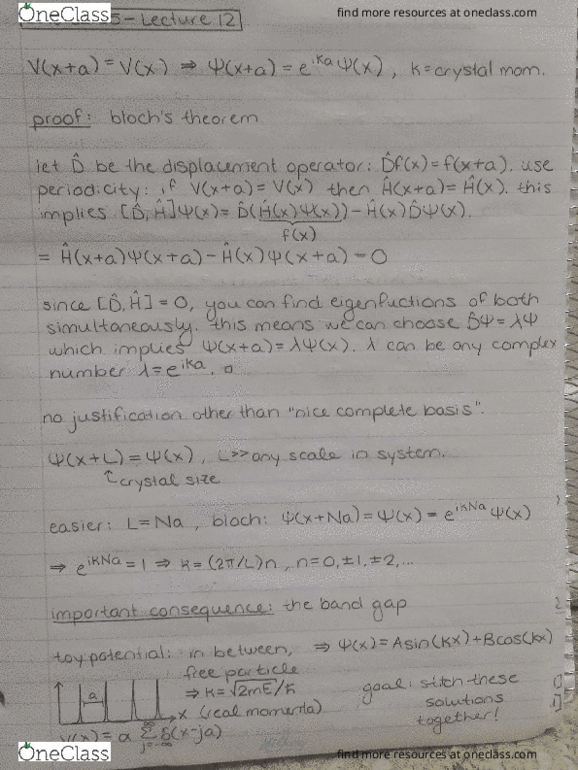 OneClass
find more resources at oneclass.com
5 - Lecture 12
V(x+a) = V(x) ⇒ Ψ(x+a) = e^{iKa} Ψ(x), K = crystal mom.
proof: bloch's theorem
let D̂ be the displacement operator: D̂f(x) = f(x+a). use
periodicity: if V(x+a) = V(x) then Ĥ(x+a) = Ĥ(x). this
implies [D̂, Ĥ]Ψ(x) = D̂(Ĥ(x)Ψ(x)) - Ĥ(x)D̂Ψ(x).
f(x)
= Ĥ(x+a)Ψ(x+a) - Ĥ(x)Ψ(x+a) = 0
since [D̂, Ĥ] = 0, you can find eigenfuctions of both
simultaneously. this means we can choose D̂Ψ = λΨ
which implies Ψ(x+a) = λΨ(x). λ can be any complex
number λ = e^{iKa}. □
no justification other than "nice complete basis".
Ψ(x+L) = Ψ(x), L >> any scale in system.
↑ crystal size
easier: L = Na, bloch: Ψ(x+Na) = Ψ(x) = e^{iKNa} Ψ(x)
⇒ e^{iKNa} = 1 ⇒ K = (2π/L)n, n = 0, ±1, ±2, ...
important consequence: the band gap
toy potential: in between, ⇒ Ψ(x) = Asin(kx) + Bcos(kx)
free particle
⇒ k = √2mE/ħ
x (real momenta)
a
goal: stitch these
solutions
together!
V(x) = α Σ_{j=-∞}^{∞} δ(x-ja)
OneClass
find more resources at oneclass.com